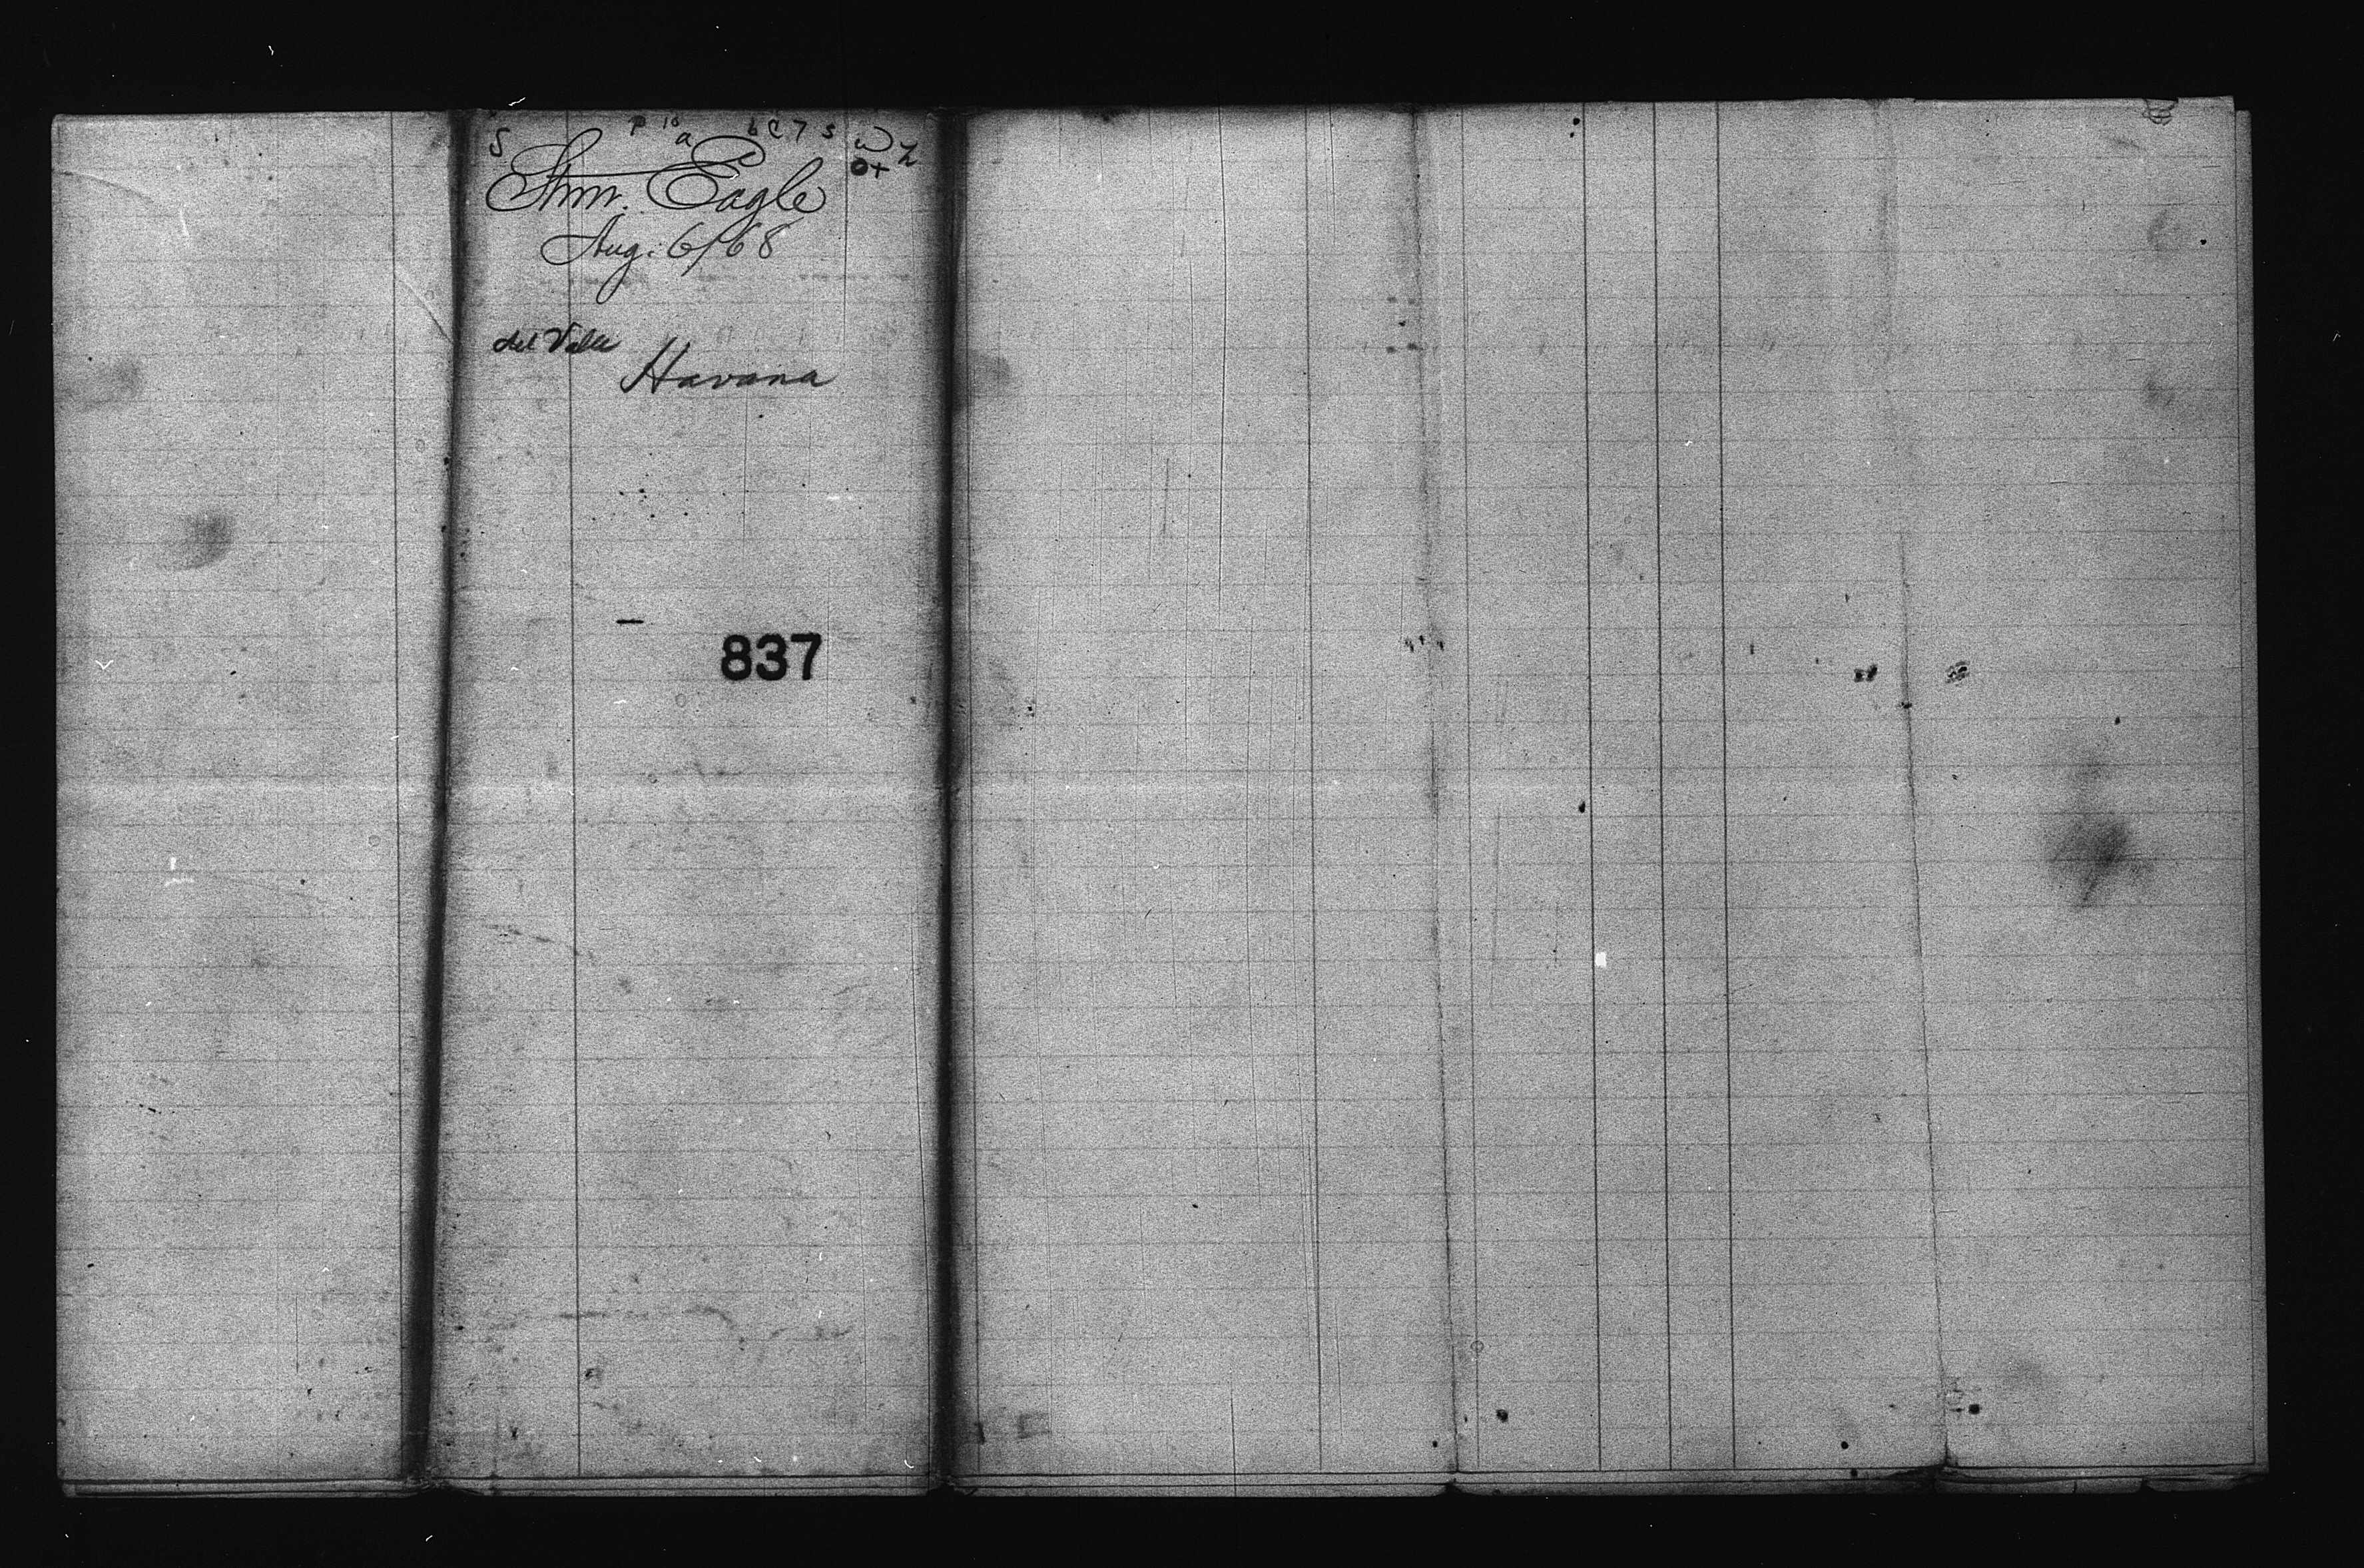 S P 10 a 6 C 7 S W Z
Stmr. Eagle
Aug. 6/68
del Valle
Havana
837